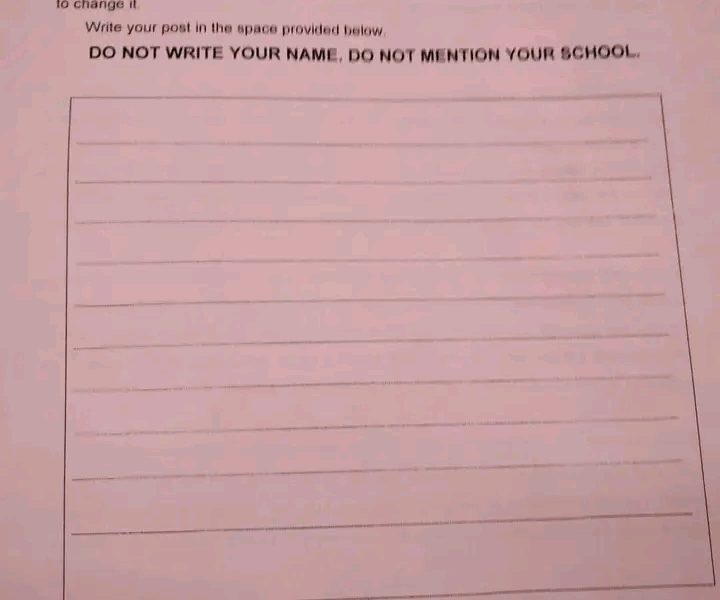 to change it.
Write your post in the space provided below.
DO NOT WRITE YOUR NAME. DO NOT MENTION YOUR SCHOOL.